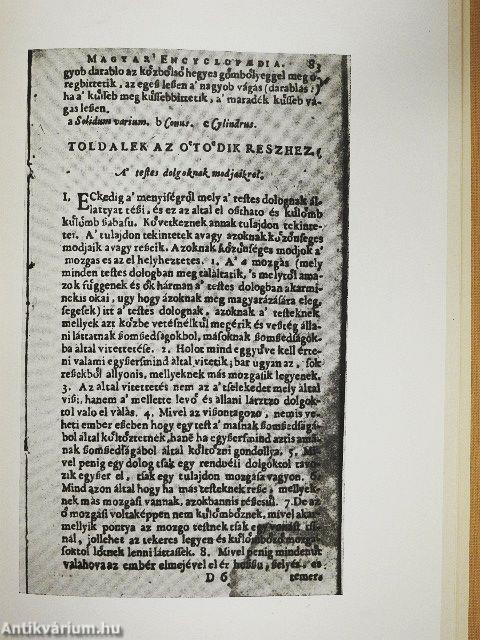 MAGYAR ENCYCLOPÆDIA. 83
gyob darablo az kózbólsó hegyes gómbólyeggel meg ó-
regbittetik, az egeß leßen a' nagyob vágás (darablás:)
ha a' kúſſeb meg kúſſebbittetik, a' maradék kúſſeb vá-
gas leßen.
a Solidum varium. b Conus. c Cylindrus.
TOLDALEK AZ OTODIK RESZHEZ,
A' testes dolgoknak modjaikról.
I. ECkedig a' menyiségról mely a' testes dolognak ál-
lattyat téßi, és ez az altal el oßtható és kúlomb
kúlomb ßabasu. Kóvetkeznek annak tulajdon tekinte-
tei. A' tulajdon tekintetek avagy azoknak kózónséges
modjaik avagy reßeik. Azoknak kózónséges modjok a'
mozgas es az el helyheztetes. 1. A' mozgás (mely
minden testes dologban meg találtatik, 's melytól ama-
zok fúggenek és ók hárman a' testes dologban akarmi-
nekis okai, ugy hogy ázoknak meg magyarázására eleg-
segesek) itt a' testes dolognak, azoknak a' testeknek
mellyek azt kózbe vetésnélkúl megérik és veßteg álla-
ni láttatnak ßomßedságokból, másoknak ßomßedságok-
ba által vitettetése. 2. Holot mind eggyúve kell érte-
ni valami egyßersmind által vitetik; bar ugyan az, sok
reßekból allyonis, mellyeknek más mozgasik legyenek.
3. Az által vitettetés nem az a' tselekedet mely által
vißi, hanem a' mellette levó és allani látzzó dolgok-
tol valo el válás. 4. Mivel az vißontagozo, nemis ve-
heti ember eßében hogy egy test a' masnak ßomßedságá-
ból által kóltóztetnék, hanē ha egyßersmind aztis ama-
nak ßomßedságából által kóltózni gondollya. 5. Mi-
vel penig egy dolog tsak egy rendbéli dolgóktol távo-
zik egyßer el, tsak egy tulajdon mozgása vagyon. 6.
Mind azon által hogy ha más testeknek reße, mellyek-
nek más mozgási vannak, azokbannis réßesúl. 7. De az
ó mozgási voltaképpen nem kúlómbóznek, mivel akar-
mellyik pontya az mozgo testnek tsak egy vonást tsi-
nál, jollehet az tekeres legyen és kúlómbózó mozgá-
soktol lótnek lenni láttassék. 8. Mivel penig mindenút
valahova az embér elmejével el ér hoßßu, ßelyes, es
D 6 temer-
Antikvárium.hu